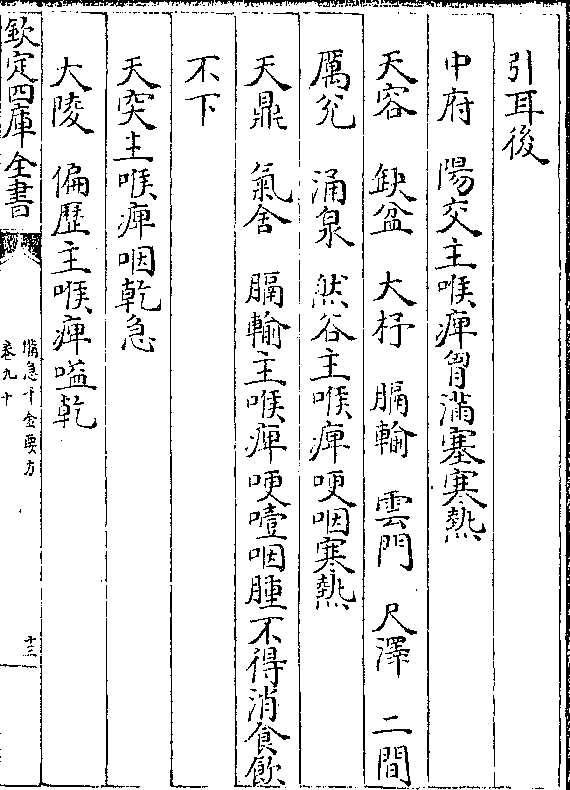 引耳後
中府　陽交主喉痺胷滿塞寒熱
天容　缺盆　大杼　膈輸　雲門　尺澤　二間
厲兊　涌泉　然谷主喉痺哽咽寒熱
天鼎　氣舍　膈輸主喉痺哽噎咽腫不得消食飲
不下
天突主喉痺咽乾急
大陵　偏歷主喉痺嗌乾
欽定四庫全書
備急千金要方
卷九十
十三